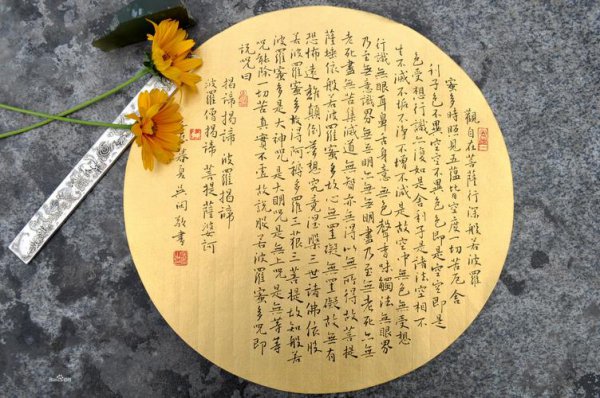 觀自在菩薩行深般若波羅
蜜多時照見五蘊皆空度一切苦厄舍
利子色不異空空不異色色即是空空即是
色受想行識亦復如是舍利子是諸法空相不
生不滅不垢不淨不增不減是故空中無色無受想
行識無眼耳鼻舌身意無色聲香味觸法無眼界
乃至無意識界無無明亦無無明盡乃至無老死亦無
老死盡無苦集滅道無智亦無得以無所得故菩提
薩埵依般若波羅蜜多故心無罣礙無罣礙故無有
恐怖遠離顛倒夢想究竟涅槃三世諸佛依般
若波羅蜜多故得阿耨多羅三藐三菩提故知般若
波羅蜜多是大神咒是大明咒是無上咒是無等等
咒能除一切苦真實不虛故說般若波羅蜜多咒即
說咒曰
揭諦揭諦波羅揭諦
波羅僧揭諦菩提薩婆訶
春月無閑敬書
Baidu百科